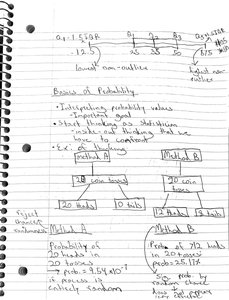 Q1 - 1.5 IQR Q1 Q2 Q3
-12.5 25 38 50
lowest non-outlier highest non-outlier
Basics of Probability
• Interpreting probability values
- Important goal
• Start thinking as statistician
- inside-out thinking that we
have to confront
• Ex: of thinking
Method A Method B
20 coin tosses 20 coin tosses
20 Heads 0 tails 12 Heads 8 tails
Reject chance/randomness
Method A Method B
Probability of
20 heads in
20 tosses
→ prob = 9.54 x10⁻⁷
if process is
entirely random
Prob of >12 heads
in 20 tosses
prob = 25.17%
prob by
random choice
does not